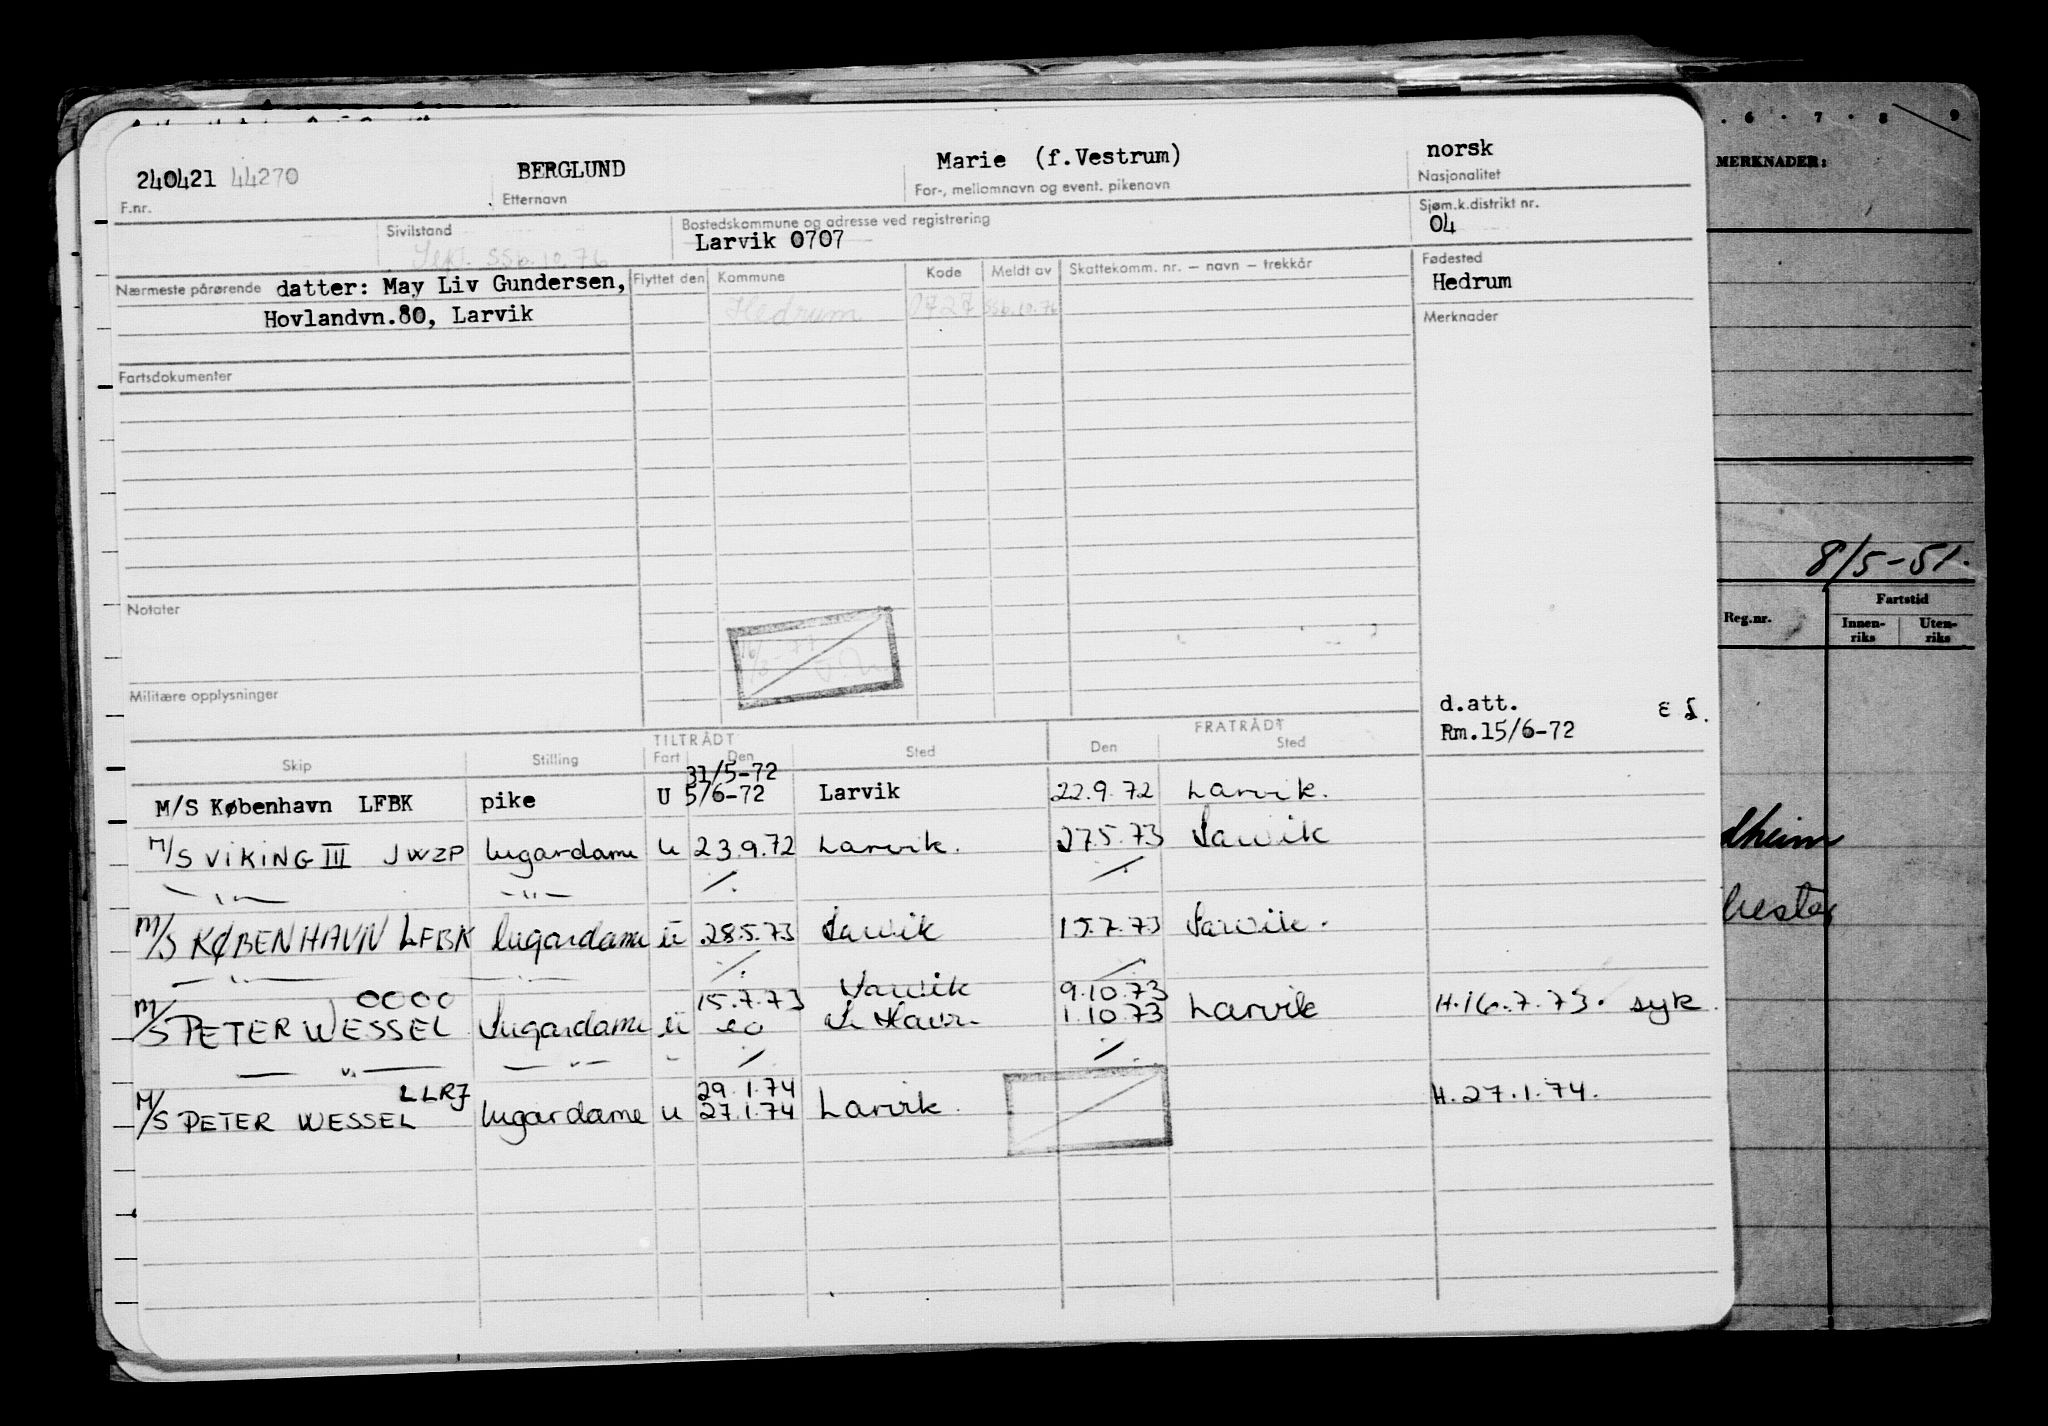 240421 44270 BERGLUND Marie (f.Vestrum) norsk
F.nr. Etternavn For-, mellomnavn og event. pikenavn Nasjonalitet
Sivilstand Bostedskommune og adresse ved registrering Sjøm.k.distrikt nr.
SSb.10.76 Larvik 0707 04
Nærmeste pårørende datter: May Liv Gundersen, Flyttet den Kommune Kode Meldt av Skattekomm. nr. – navn – trekkår Fødested
Hovlandvn.80, Larvik Hedrum 0727 SSb.10.76 Hedrum
Merknader
Fartsdokumenter
Notater
Militære opplysninger
d.att. E S.
Rm.15/6-72
TILTRÅDT FRATRÅDT
Skip Stilling Fart Den Sted Den Sted
31/5-72
M/S København LFBK pike U 5/6-72 Larvik 22.9.72 Larvik.
M/S VIKING III JWZP lugardame u 23.9.72 Larvik. 27.5.73 Larvik
— " — — " — /. /.
M/S KØBENHAVN LFBK lugardame ü 28.5.73 Larvik 15.7.73 Larvik.
— " — — " — /. /.
OOOO 15.7.73 Larvik 9.10.73
M/S PETER WESSEL lugardame ü Fr Havn 1.10.73 Larvik H.16.7.73. syk.
— " — — " — /. /.
LLRJ 29.1.74
M/S PETER WESSEL lugardame u 27.1.74 Larvik. H.27.1.74.
. 6 . 7 . 8 9
MERKNADER:
8/5-51.
Reg.nr. Fartstid
Innen-riks Uten-riks
dheim